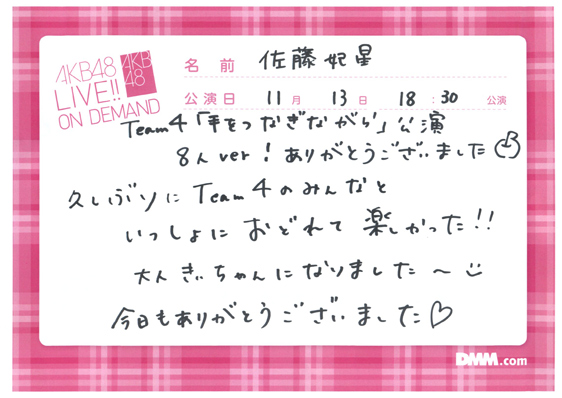 AKB48
LIVE!!
ON DEMAND
AKB
48
名前 佐藤妃星
公演日 11月 13日 18:30 公演
Team4「手をつなぎながら」公演
8人ver!ありがとうございました
久しぶりにTeam4のみんなと
いっしょにおどれて楽しかった!!
大人きぃちゃんになりました〜
今日もありがとうございました♡
DMM.com